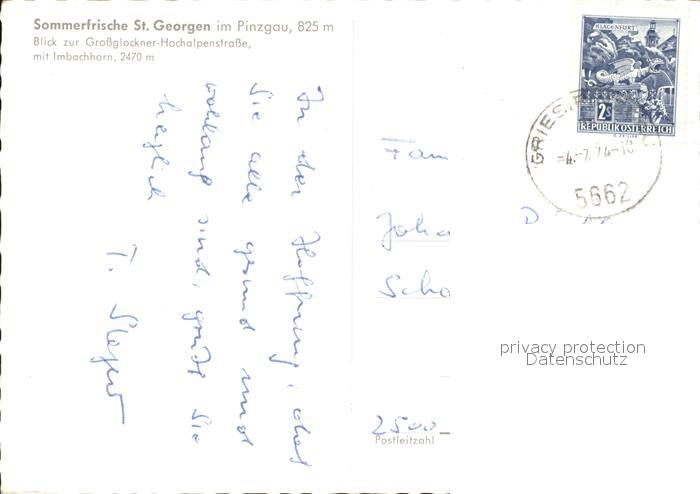 Sommerfrische St. Georgen im Pinzgau, 825 m
Blick zur Großglockner-Hochalpenstraße,
mit Imbachhorn, 2470 m
In der Hoffnung, daß
Sie alle gesund und
wohlauf sind, grüßt Sie
herzlich
T. Steger
Fam
Joha
Scha
2500
Postleitzahl
KLAGENFURT
2S
REPUBLIK ÖSTERREICH
GRIES
-4.-7.74-18
5662
privacy protection
Datenschutz